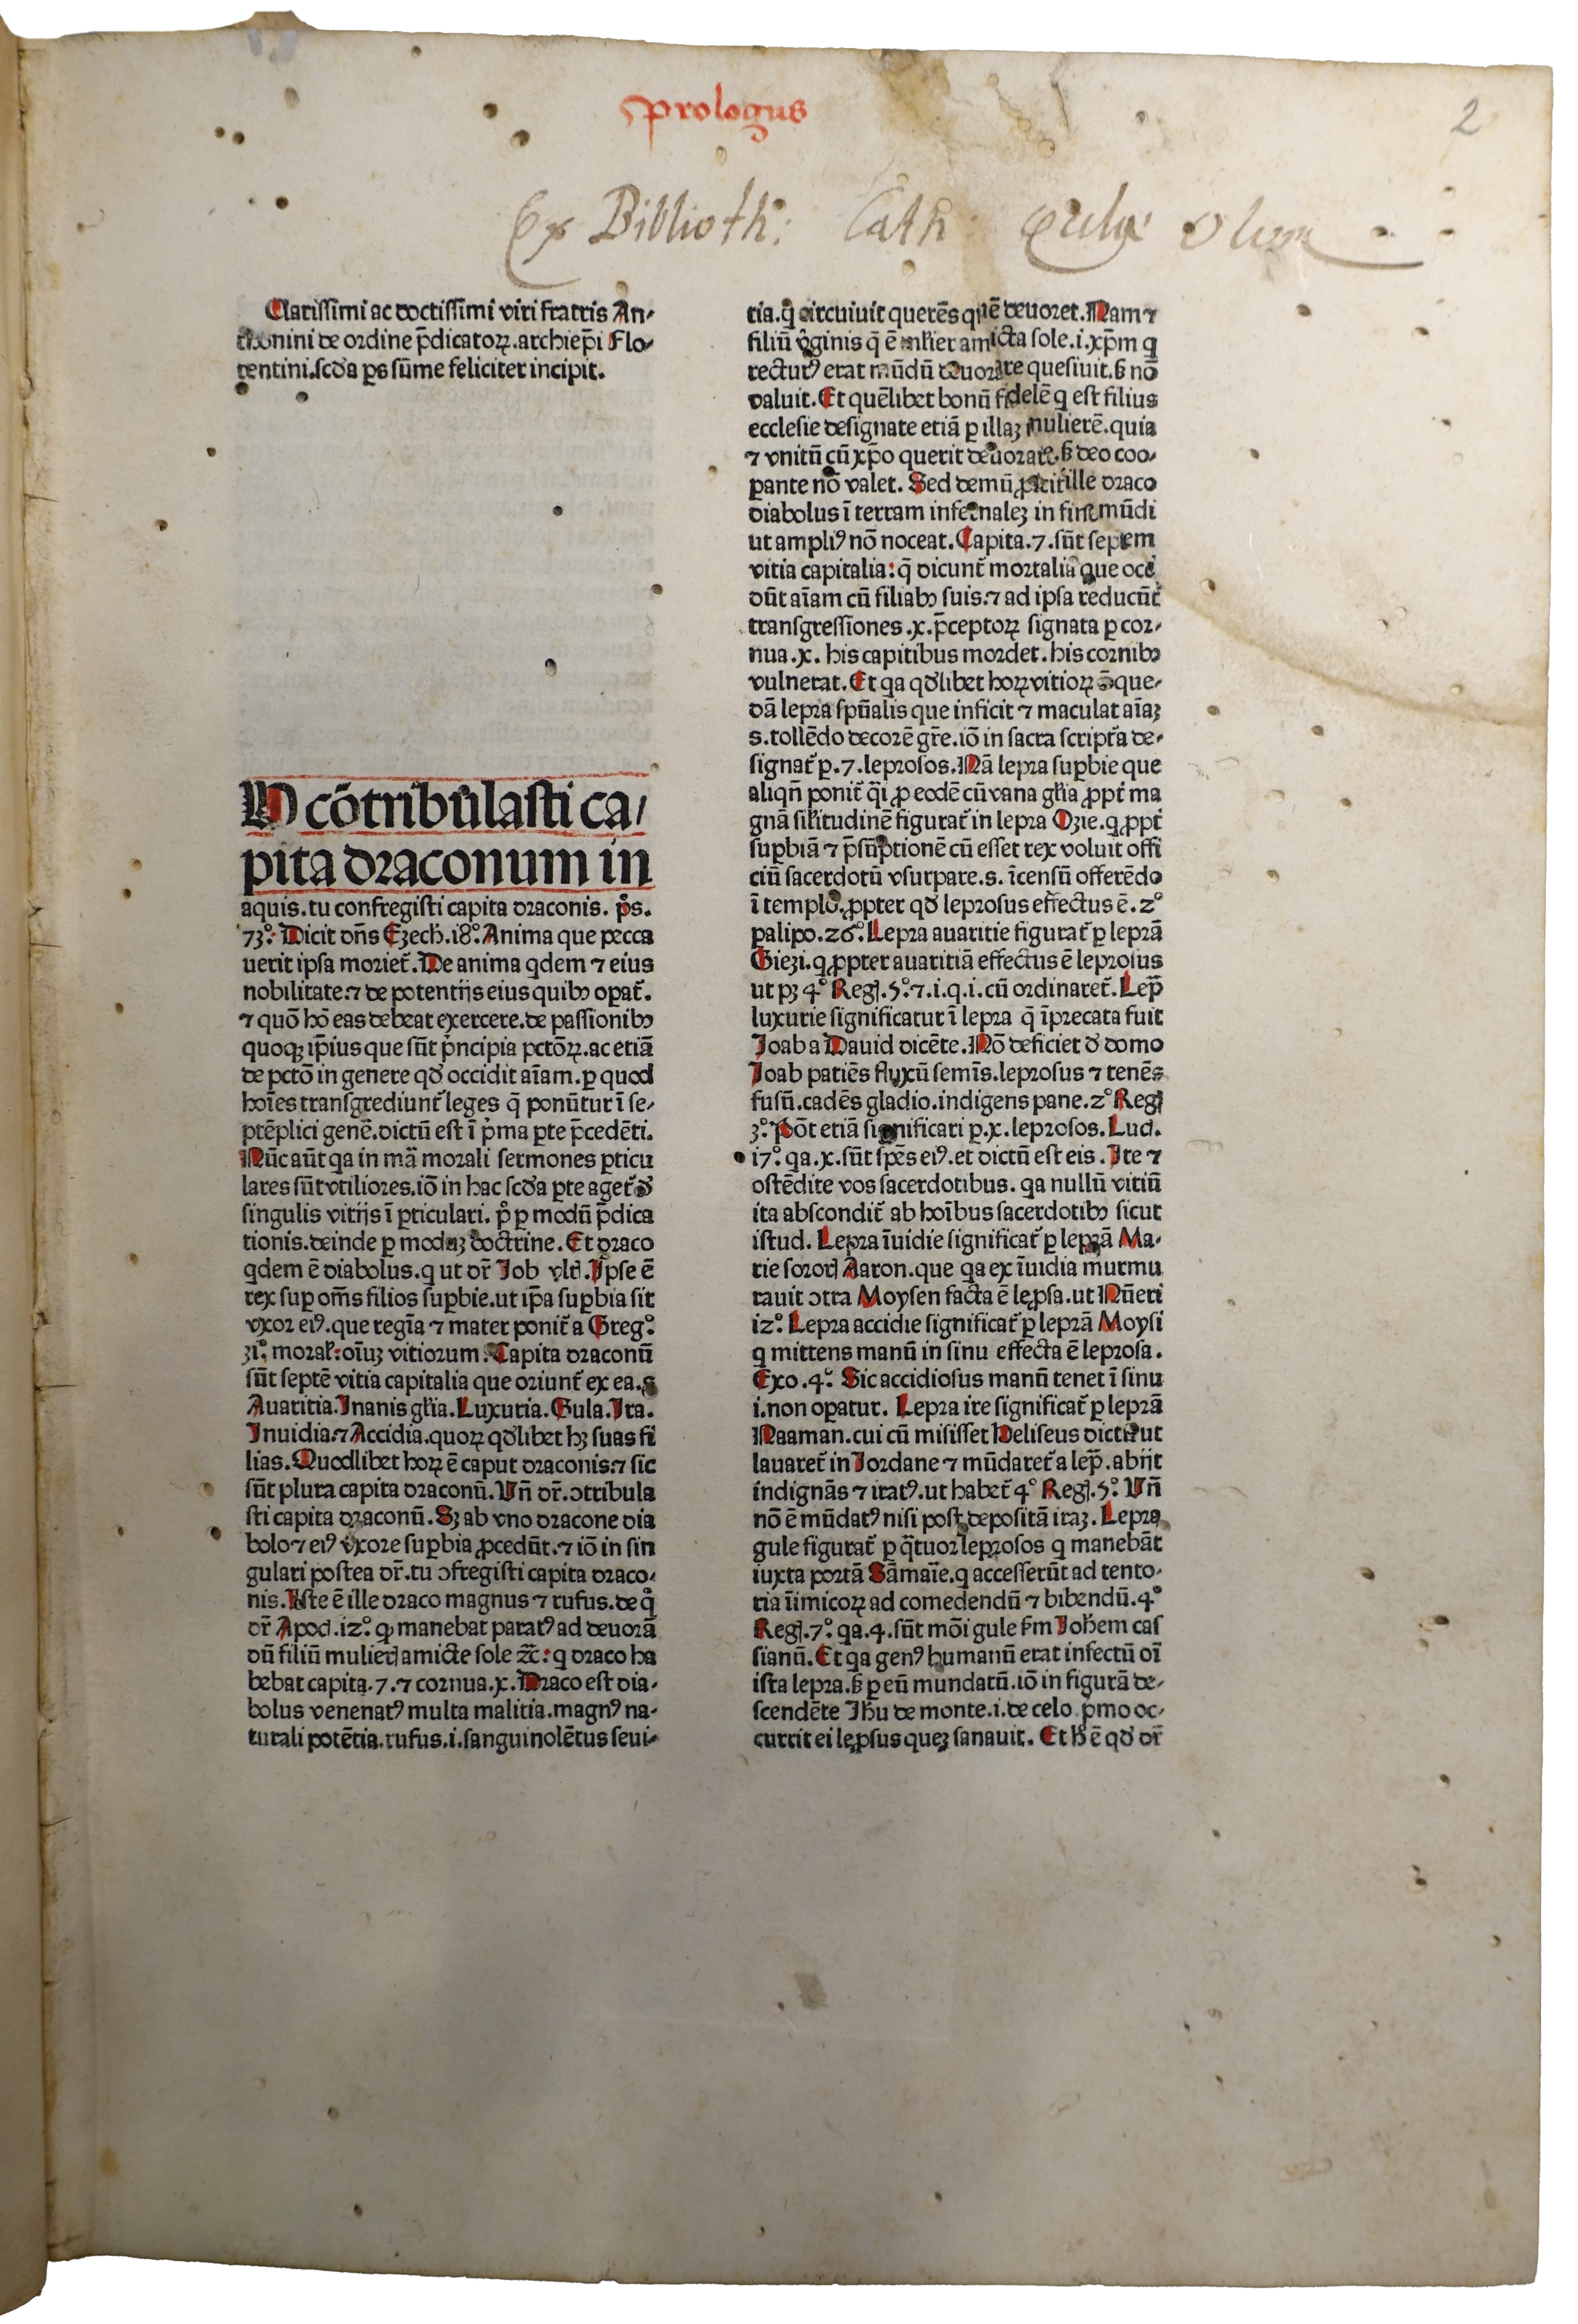 prologus
2
Ex Biblioth: Cath: Olom
Clarissimi ac doctissimi viri fratris An-
thonini de ordine p̄dicatoꝝ. archiep̄i Flo-
rentini. scd̓a ps sūme feliciter incipit.
U cōtribulasti ca/
pita draconum in
aquis. tu confregisti capita draconis. pͦs.
73.° Dicit dn̄s Ezech. 18.° Anima que pecca
uerit ipsa moriet᷑. De anima qdem ⁊ eius
nobilitate. ⁊ de potentijs eius quibꝰ oꝑat᷑.
⁊ quō hō eas debeat exercere. de passionibꝰ
quoqꝫ ip̄ius que sūt pͥncipia pctōꝝ. ac etiā
de pctō in genere qd̓ occidit aīam. ꝑ quod
hoīes transgrediunt᷑ leges q̄ ponūtur ī se-
ptēplici genē. dictū est ī pͥma ꝑte p̄cedēti.
Nūc aūt qa in mā morali sermones ꝑticu
lares sūt vtiliores. iō in hac scd̓a ꝑte aget᷑ d̓
singulis vitijs ī ꝑticulari. pͦ ꝑ modū p̄dica
tionis. deinde ꝑ moduꝫ doctrine. Et draco
qdem ē diabolus. q ut dr̄ Job vlt̓. Ipse ē
rex suꝑ om̄s filios suꝑbie. ut ip̄a suꝑbia sit
vxor eiꝰ. que regīa ⁊ mater ponit᷑ a Greg.°
31.° moral̓: oīuꝫ vitiorum. Capita draconū
sūt septē vitia capitalia que oriunt᷑ ex ea. s.
Auaritia. Inanis gl̓ia. Luxuria. Gula. Ira.
Inuidia. ⁊ Accidia. quoꝝ qd̓libet hꝫ suas fi
lias. Quodlibet hoꝝ ē caput draconis. ⁊ sic
sūt plura capita draconū. Vn̄ dr̄. ↄtribula
sti capita draconū. Sꝫ ab vno dracone dia
bolo ⁊ eiꝰ vxore suꝑbia ꝓcedūt. ⁊ iō in sin
gulari postea dr̄. tu ↄfregisti capita draco-
nis. Iste ē ille draco magnus ⁊ rufus. de qͦ
dr̄ Apoc̓. 12.° ꝙ manebat paratꝰ ad deuorā
dū filiū mulieꝝ amicte sole ⁊c̄: q draco ha
bebat capita. 7. ⁊ cornua. x. Draco est dia-
bolus venenatꝰ multa malitia. magnꝰ na-
turali potētia. rufus. i. sanguinolētus seui-
tia. q̄ circuiuit querēs quē deuoret. Nam ⁊
filiū vͥginis q̄ ē mulier amicta sole. i. xp̄m q
recturꝰ erat mūdū deuorare quesiuit. ß nō
valuit. Et quēlibet bonū fidelē q est filius
ecclesie designate etiā ꝑ illaꝫ mulierē. quia
⁊ vnitū cū xp̄o querit deuorare. ß deo coo-
ꝑante nō valet. Sed demū ꝓicit᷑ ille draco
diabolus ī terram infernaleꝫ in fine mūdi
ut ampliꝰ nō noceat. Capita. 7. sūt septem
vitia capitalia: q̄ dicunt᷑ mortalia que occi
dūt aīam cū filiabꝰ suis. ⁊ ad ipsa reducūt᷑
transgressiones. x. p̄ceptoꝝ signata ꝑ cor-
nua. x. his capitibus mordet. his cornibꝰ
vulnerat. Et qa qd̓libet hoꝝ vitioꝝ ē que-
dā lepra sp̄ualis que inficit ⁊ maculat aīaꝫ
s. tollēdo decorē gr̄e. iō in sacra script᷑a de-
signat᷑ ꝑ. 7. leprosos. Nā lepra suꝑbie que
aliqn̄ ponit᷑ q̄i ꝓ eodē cū vana gl̓ia ꝓpt᷑ ma
gnā sil̓itudinē figurat᷑ in lepra Ozie. q ꝓpt᷑
suꝑbiā ⁊ p̄sūptionē cū esset rex voluit offi
ciū sacerdotū vsurpare. s. īcensū offerēdo
ī templo. ꝓpter qd̓ leprosus effectus ē. 2°
palipo. 26.° Lepra auaritie figurat᷑ ꝑ leprā
Giezi. q ꝓpter auaritiā effectus ē leprosus
ut pꝫ 4° Reg̓. 5.° 7. i. q. i. cū ordinaret᷑. Lep̄
luxurie significatur ī lepra q̄ īprecata fuit
Joab a Dauid dicēte. Nō deficiet d̓ domo
Joab patiēs fluxū semīs. leprosus ⁊ tenēs
fusū. cadēs gladio. indigens pane. 2° Reg̓
3.° Pōt etiā significari ꝑ. x. leprosos. Luc̓.
17.° qa. x. sūt sp̄es eiꝰ. et dictū est eis. Ite ⁊
ostēdite vos sacerdotibus. qa nullū vitiū
ita abscondit᷑ ab hoībus sacerdotibꝰ sicut
istud. Lepra īuidie significat᷑ ꝑ leprā Ma-
rie soroꝝ Aaron. que qa ex īuidia murmu
rauit ↄtra Moysen facta ē leꝓsa. ut Nūeri
12.° Lepra accidie significat᷑ ꝑ leprā Moysi
q mittens manū in sinu effecta ē leprosa.
Exo. 4.° Sic accidiosus manū tenet ī sinu
i. non oꝑatur. Lepra ire significat᷑ ꝑ leprā
Naaman. cui cū misisset Heliseus dictū ut
lauaret᷑ in Jordane ⁊ mūdaret᷑ a lep̄. abijt
indignās ⁊ iratꝰ. ut habet᷑ 4° Reg̓. 5.° Vn̄
nō ē mūdatꝰ nisi post depositā iraꝫ. Lepra
gule figurat᷑ ꝑ q̄tuor leprosos q manebāt
iuxta portā Sāmaīe. q accesserūt ad tento-
ria īimicoꝝ ad comedendū ⁊ bibendū. 4°
Reg̓. 7.° qa. 4. sūt mōi gule ẜm Joh̄em cas
sianū. Et qa genꝰ humanū erat infectū oī
ista lepra. ß ꝑ eū mundatū. iō in figurā de-
scendēte Jh̄u de monte. i. de celo pͥmo oc-
currit ei leꝓsus queꝫ sanauit. Et h̓ ē qd̓ dr̄